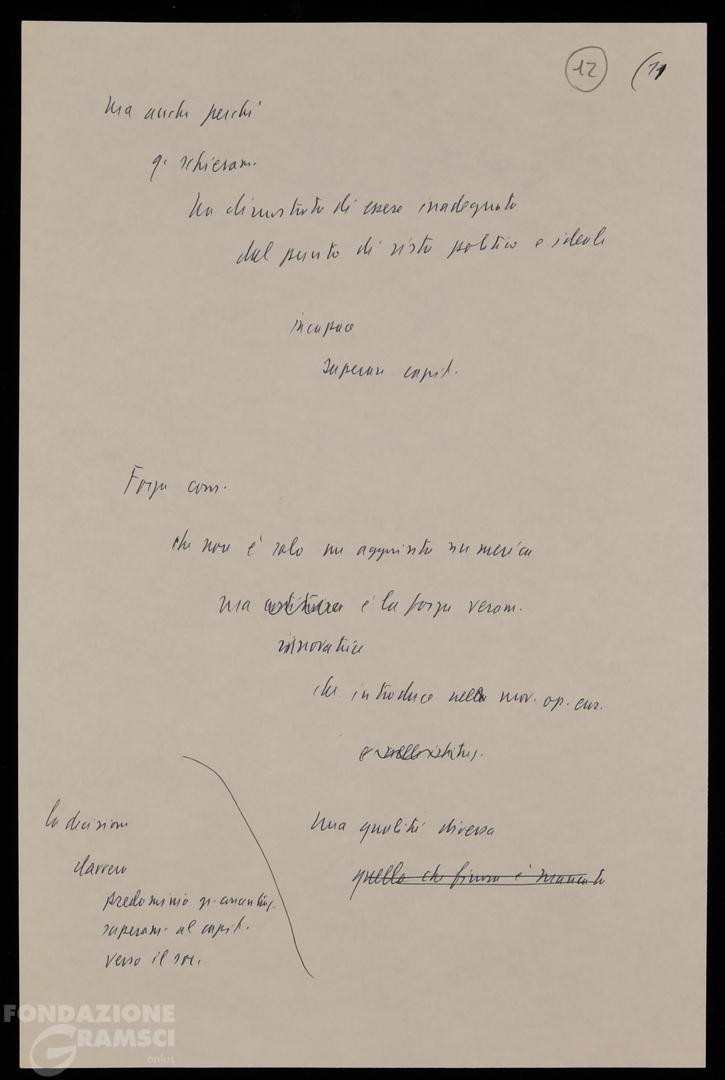 12 (11
Ma anche perché
q. schieram.
ha dimostrato di essere inadeguato
dal punto di vista politico e ideale
incapace
superare capit.
Forza com.
che non è solo un aggiunta numerica
ma è la forza veram.
rinnovatrice
che introduce nella mov. op. eur.
una qualità diversa
quello che finora è mancato
la decisione
davvero
predominio
superam. al capit.
verso il soc.
FONDAZIONE
GRAMSCI
onlus